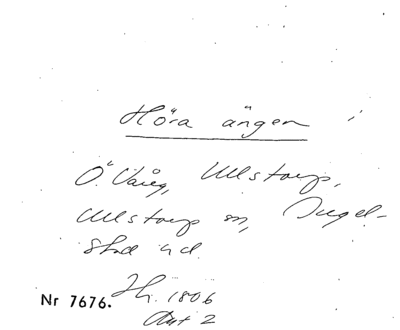 Höra ängen
Ö. Vång, Ullstorp,
Ullstorp sn, Ingel-
stad hd.
Nr 7676. Hr. 1806
Akt 2